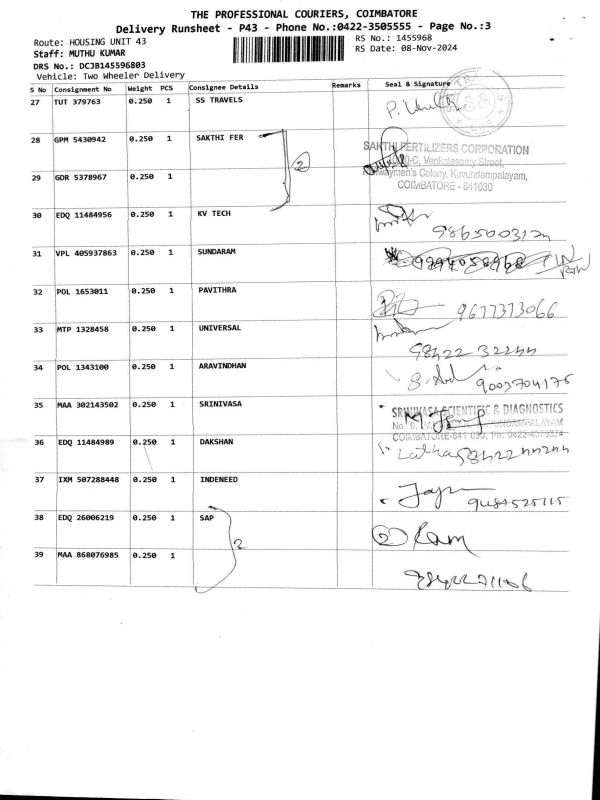 THE PROFESSIONAL COURIERS, COIMBATORE
Delivery Runsheet - P43 - Phone No.:0422-3505555 - Page No.:3
Route: HOUSING UNIT 43
RS No.: 1455968
Staff: MUTHU KUMAR
RS Date: 08-Nov-2024
DRS No.: DCJB145596803
Vehicle: Two Wheeler Delivery
S No Consignment No Weight PCS Consignee Details Remarks Seal & Signature
27 TUT 379763 0.250 1 SS TRAVELS
28 GPM 5430942 0.250 1 SAKTHI FER
2
SAKTHI FERTILIZERS CORPORATION
Venkatasamy Street,
Colony, Kavundampalayam,
COIMBATORE - 641030
29 GDR 5378967 0.250 1
30 EDQ 11484956 0.250 1 KV TECH
9865003124
31 VPL 405937863 0.250 1 SUNDARAM
32 POL 1653011 0.250 1 PAVITHRA
9677373066
33 MTP 1328458 0.250 1 UNIVERSAL
98422 32244
34 POL 1343100 0.250 1 ARAVINDHAN
9003704175
35 MAA 302143502 0.250 1 SRINIVASA
SRINIVASA SCIENTIFIC & DIAGNOSTICS
36 EDQ 11484989 0.250 1 DAKSHAN
Latha
37 IXM 507288448 0.250 1 INDENEED
38 EDQ 26006219 0.250 1 SAP
2
2 Ram
39 MAA 868076985 0.250 1